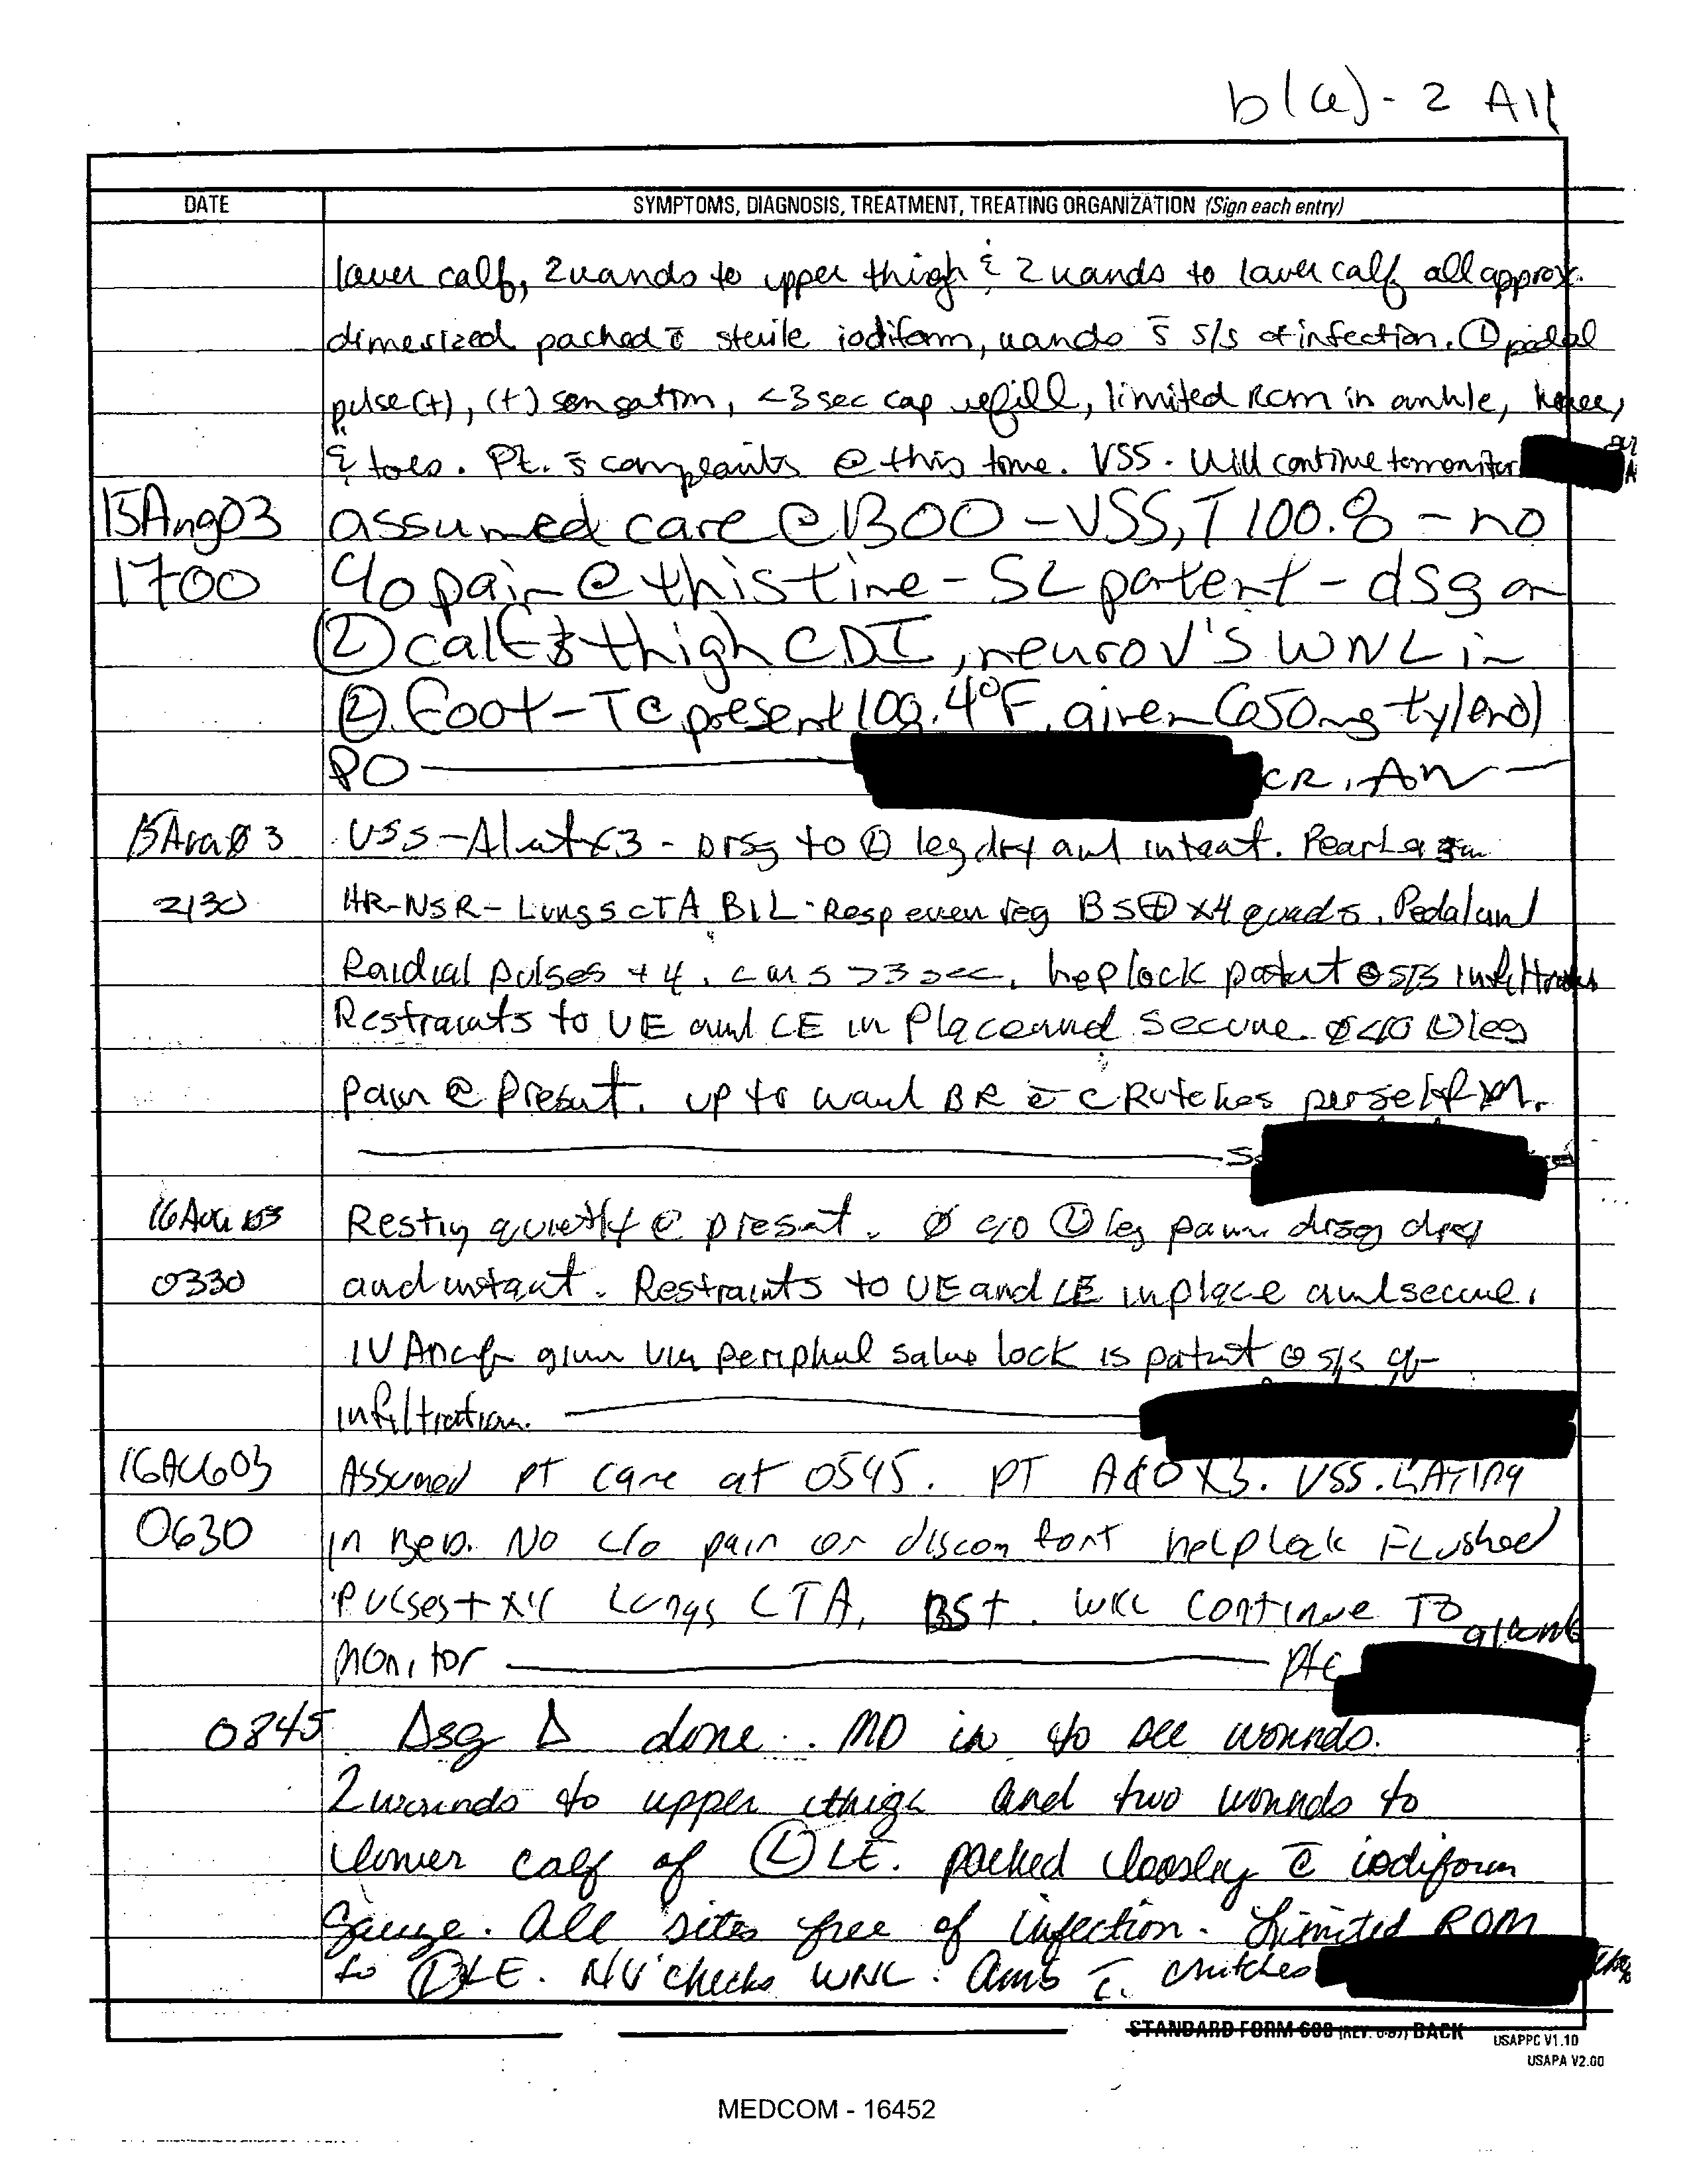 b(6)-2 All
DATE
SYMPTOMS, DIAGNOSIS, TREATMENT, TREATING ORGANIZATION (Sign each entry)
lower calf, 2 wounds to upper thigh & 2 wounds to lower calf all approx.
packed c̄ sterile iodiform, wounds s̄ s/s of infection. Ⓛ pedal
pulse (+), (+) sensation, <3 sec cap refill, limited ROM in ankle, knee,
& toes. Pt. s̄ complaints @ this time. VSS. Will continue to monitor
15Aug03 assumed care @ 1300 - VSS, T 100.8 - no
1700 c/o pain @ this time - SL patent - dsg on
Ⓛ calf & thigh CDI, neurov's WNL in
Ⓛ foot - T @ present .4°F, given 650mg tylenol
PO
15Aug03 VSS - Alert x3 - Drsg to Ⓛ leg dry and intact.
2130 HR-NSR - Lungs CTA BIL - Resp even reg BS⊕ x4 quads. Pedal and
Raidial pulses +4. cms >3 sec. heplock patent ⊖ s/s infiltration
Restraints to UE and LE in place and secure. Ø c/o Ⓛ leg
pain @ present. up to BR c̄ cRutches per self
16Aug03 Resting quietly @ present. Ø c/o Ⓛ leg pain drsg dry
0330 and intact. Restraints to UE and LE in place and secure.
IV Ancef given via periphal saline lock is patent ⊖ s/s of
infiltration.
16AUG03 Assumed PT care at 0545. PT A&O X3. VSS. LAYING
0630 in Bed. No c/o pain or discomfort helplock Flushed
Pulses + x4 Lungs CTA, BS+. Will continue To
monitor
0845 Dsg Δ done. MD in to see wounds.
2 wounds to upper thigh and two wounds to
lower calf of Ⓛ LE. packed loosley c̄ iodiform
gauze. All sites free of infection. Limited ROM
to Ⓛ LE. NV checks WNL. Amb c̄ crutches
STANDARD FORM 600 (REV. 6-97) BACK
USAPPC V1.10
USAPA V2.00
MEDCOM - 16452